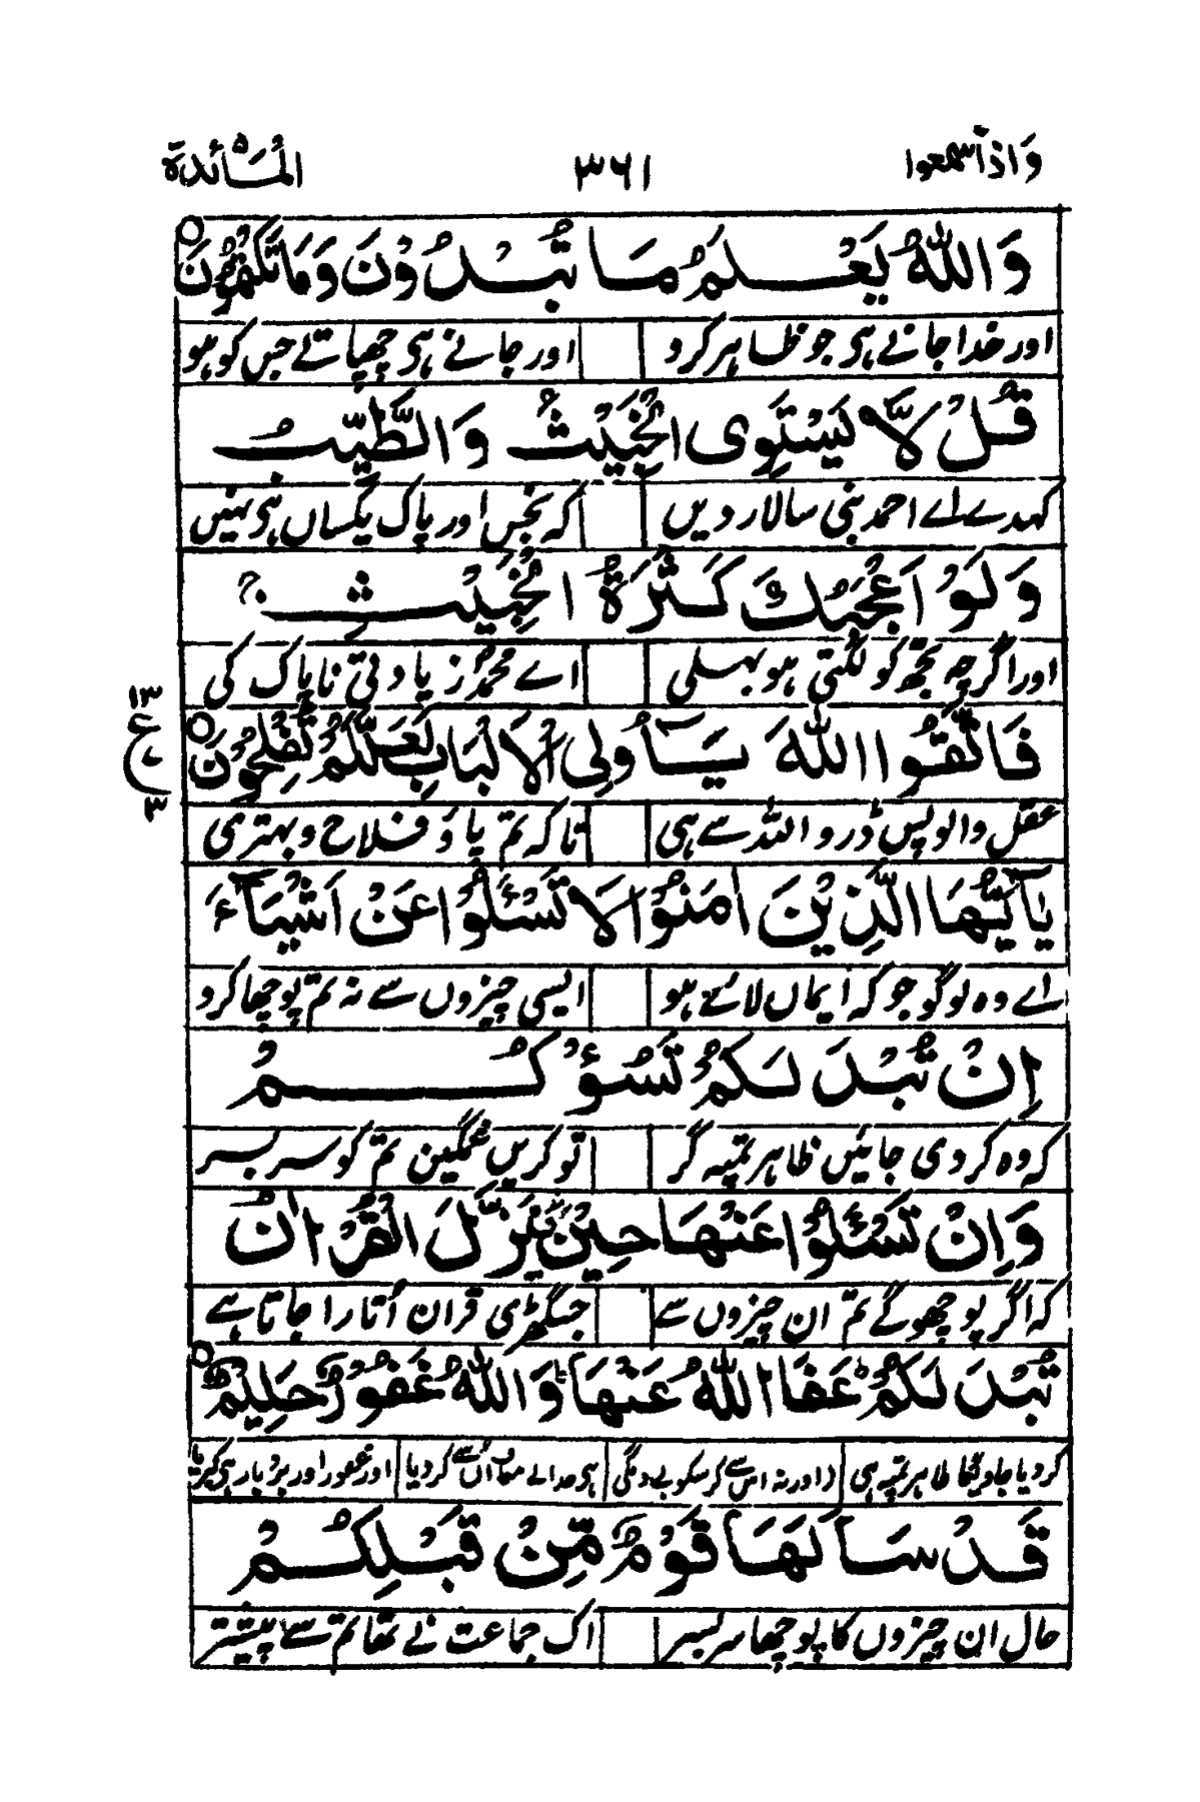 وَاِذَاسَمِعُوا ۳۶۱ الْمَآئِدَة
وَاللّٰهُ يَعْلَمُ مَا تُبْدُوْنَ وَمَا تَكْتُمُوْنَ ○
اور خدا جانے ہی جو ظاہر کرو اور جانے ہی چھپاتے جس کو ہو
قُلْ لَّا يَسْتَوِى الْخَبِيْثُ وَالطَّيِّبُ
کہدے اے احمد نبی سالار دیں کہ نجس اور پاک یکساں ہی نہیں
وَلَوْ اَعْجَبَكَ كَثْرَةُ الْخَبِيْثِ ج
اور اگرچہ تجھ کو لگتی ہو بھلی اے محمدؐ زیادتی ناپاک کی
فَاتَّقُوا اللّٰهَ يٰٓاُولِى الْاَلْبَابِ لَعَلَّكُمْ تُفْلِحُوْنَ ○
۱۳ ع ۳
عقل والو پس ڈرو اللہ سے ہی تاکہ تم پاؤ فلاح و بہتری
يٰٓاَيُّهَا الَّذِيْنَ اٰمَنُوْا لَا تَسْـَٔلُوْا عَنْ اَشْيَآءَ
اے وہ لوگو جو کہ ایماں لائے ہو ایسی چیزوں سے نہ تم پوچھا کرو
اِنْ تُبْدَ لَكُمْ تَسُؤْكُمْ
کہ وہ کر دی جائیں ظاہر تمپہ گر تو کریں غمگین تم کو سر بسر
وَاِنْ تَسْـَٔلُوْا عَنْهَا حِيْنَ يُنَزَّلُ الْقُرْاٰنُ
کہ اگر پوچھو گے تم ان چیزوں سے جس گھڑی قرآن اُتارا جاتا ہے
تُبْدَ لَكُمْ ط عَفَا اللّٰهُ عَنْهَا ط وَاللّٰهُ غَفُوْرٌ حَلِيْمٌ ○
کر دیا جاویگا ظاہر تمپہ ہی اور غفور اور بردبار ہی
قَدْ سَاَلَهَا قَوْمٌ مِّنْ قَبْلِكُمْ
حال ان چیزوں کا پوچھا سر بسر اک جماعت نے تھا تم سے پیشتر